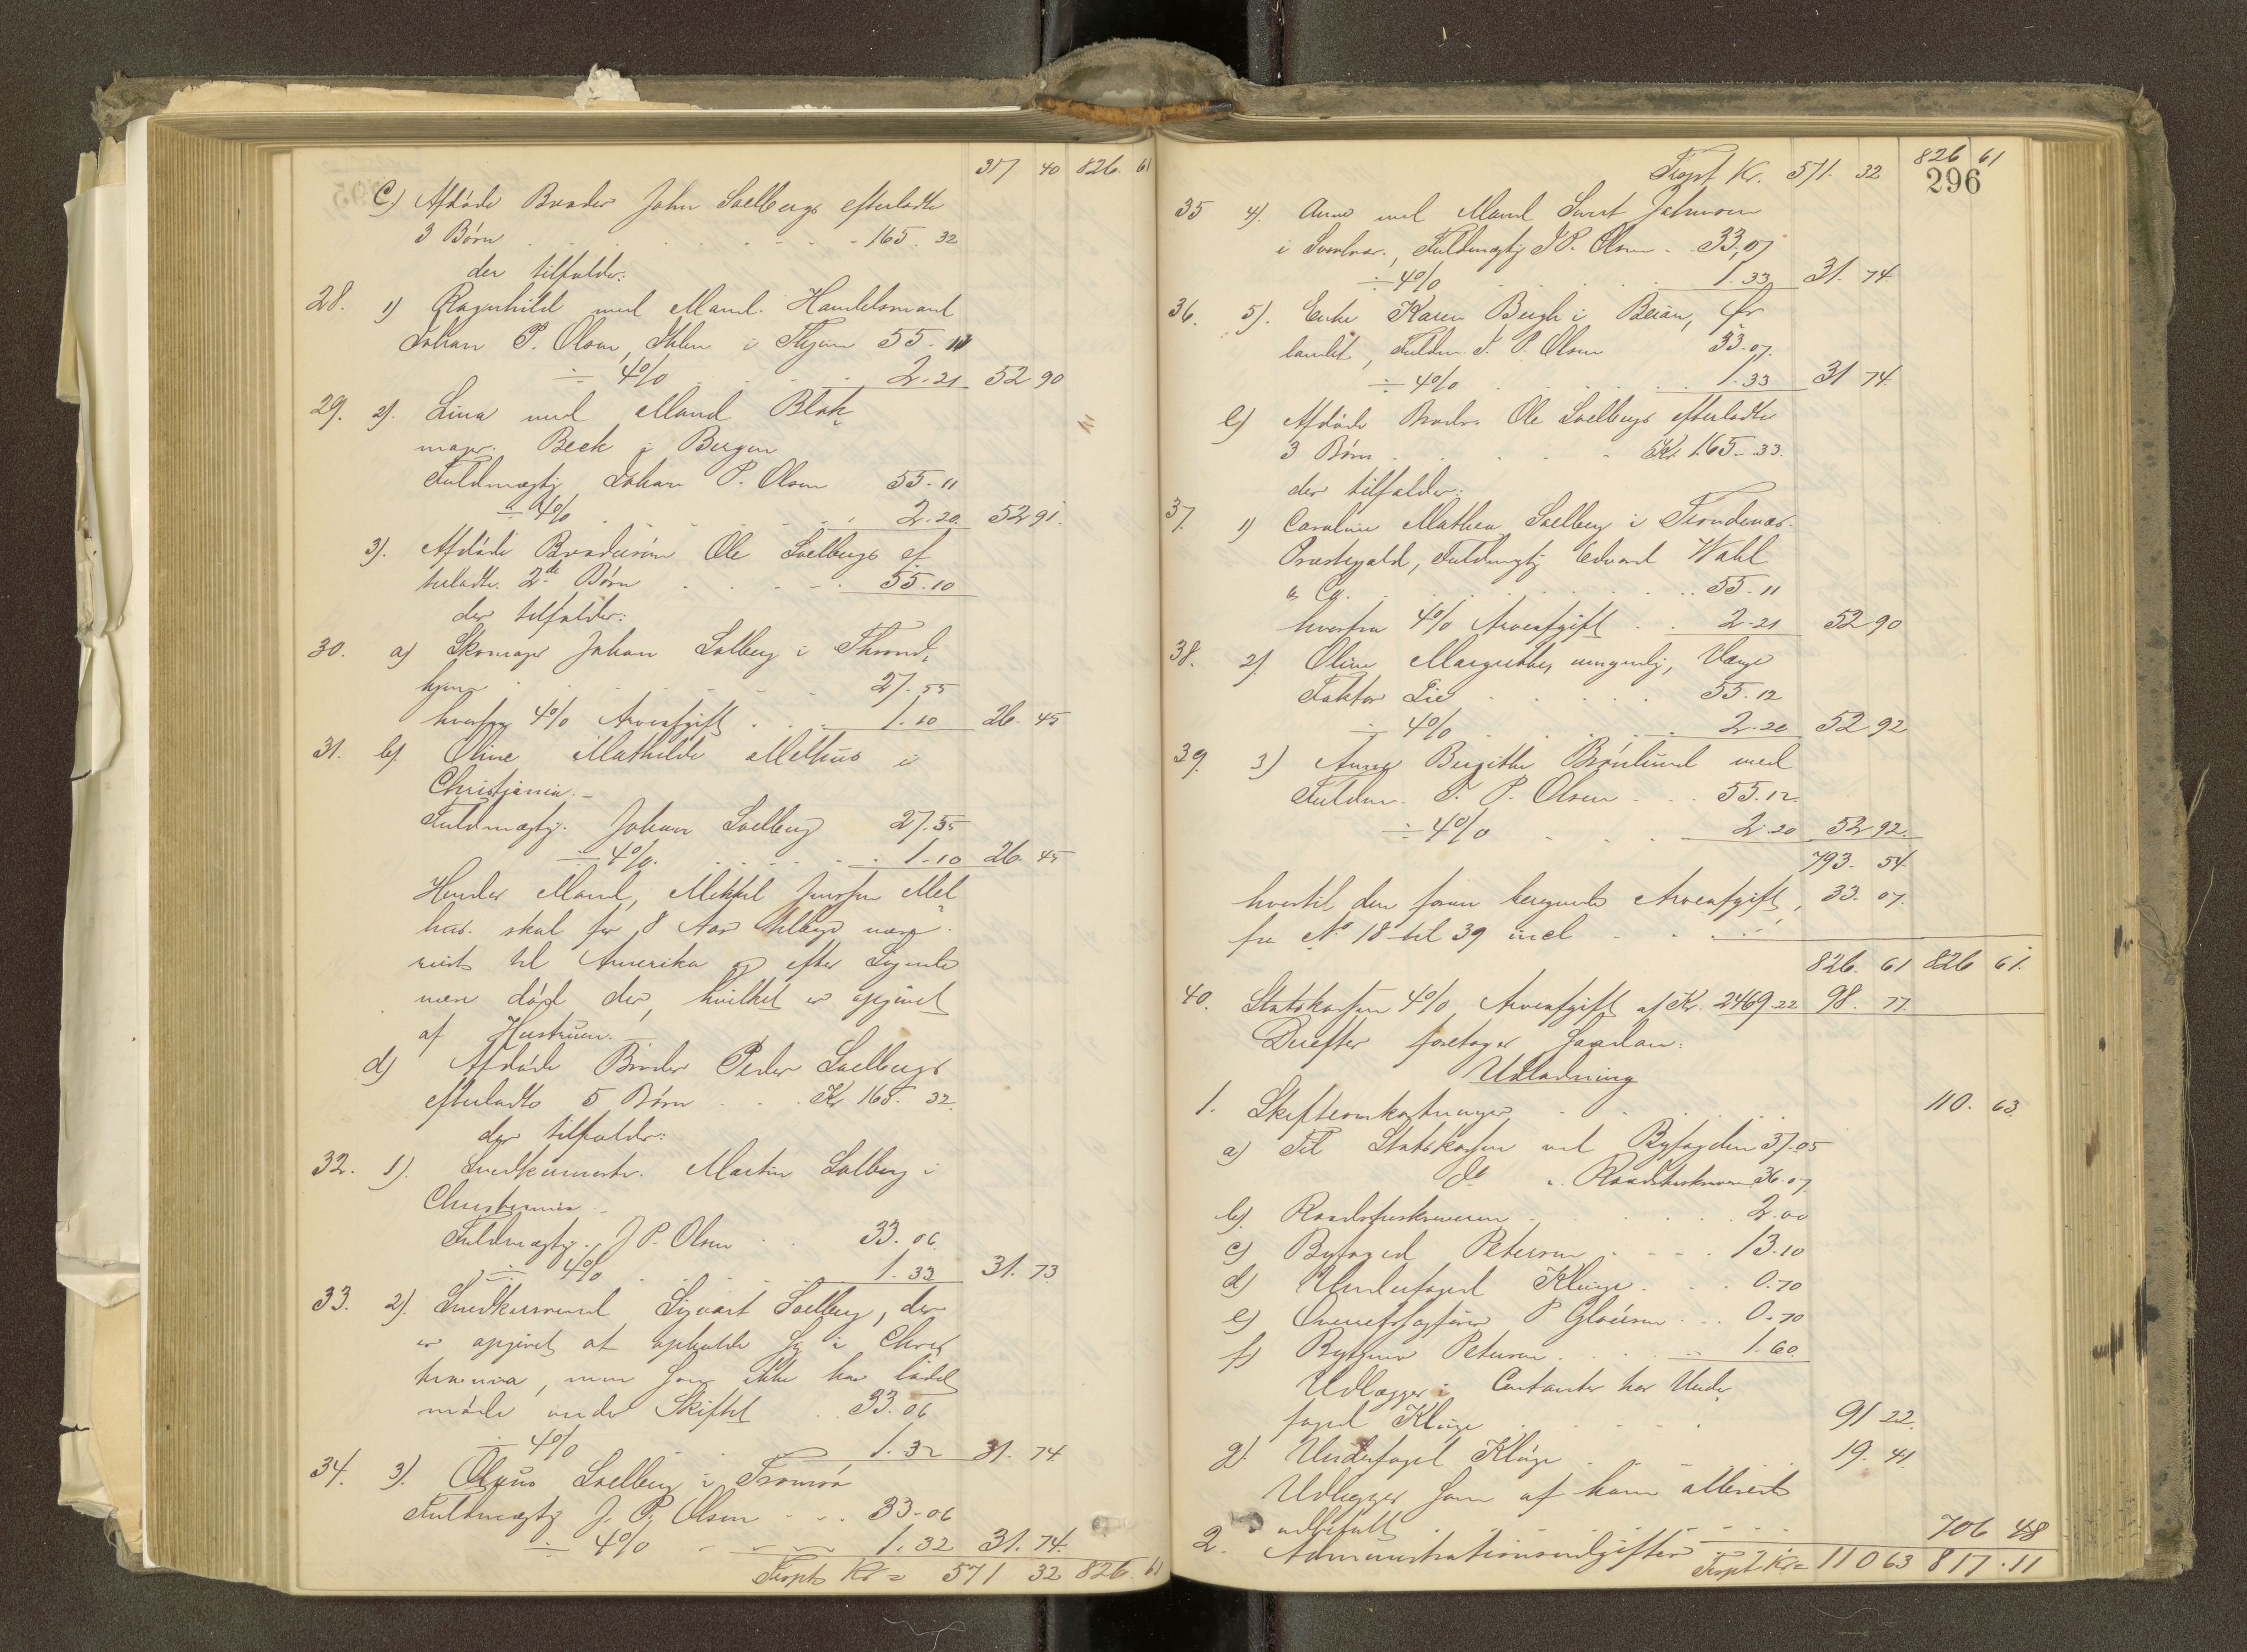 317 40 826. 61
C) Afdøde Broder John Solbergs efterladte
3 Børn . . . 165. 32
der tilfalder:
28. 1) Ragnhild med Mand. Handelsmand
Johan P. Olsen, Ihlen i Thjem 55. 11
÷ 4% . . . 2.21 52 90
29. 2). Lina med Mand Blok
mager. Beck i Bergen
Fuldmægtig Johan P. Olsen 55-11
÷ 4% . . . 2.20. 52 91.
3). Afdøde Brodersøn Ole Solbergs ef
terladte 2de Børn . . . 55.10
der tilfalder:
30. a) Skomager Johan Solberg i Thrond,
hjem . . . 27.55
hvorfra 4% Arveafgift . . . 1.10 26. 45
31. b). Oline Mathilde Melhus i
Christjania. -
Fuldmægtig. Johan Solberg 27.55
÷ 4%. . . . 1.10 26. 45
Hendes Mand, Mikkel Jensen Mel
hus. skal for 8 Aar tilbage være
reist til Amerika og efter Sigende
være død der, hvilket er opgivet
af Hustruen. -
d) Afdøde Broder Peder Solbergs
efterladte 5 Børn . . . Kr 165. 32.
der tilfalder:
32. 1). Snedkermester. Martin Solberg i
Christiania -
Fuldmægtig. J P. Olsen . . 33.06
÷ 4% . . . 1.33 31. 73
33. 2). Snedkersvend Sigvart Solberg, der
er opgivet at opholde sig i Chris
tiania, men som ikke har ladet
møde under Skiftet . . 33.06
÷ 4% . . . 1.32 31. 74
34. 3). Olaus Solberg i Tromsø
Fuldmægtig J. P. Olsen . . . 33-06
÷ 4% . . . 1.32 31. 74.
Trspt Kr = 571 32 826. 61
Trspt Kr. 571. 32 826 61
296
35 4). Anna med Mand Johnsen
i Svolvær., Fuldmægtig J P. Olsen . . 33,07
÷ 4% . . . 1.33 31. 74
36. 5). Enke Karen Bergh i Beian, Ør
landet, Fuldm. J. P. Olsen 33.07.
÷ 4% . . . 1.33 31 74.
e) Afdøde Broder Ole Solbergs efterladte
3 Børn . . . Kr 165.33.
der tilfalder:
37 1) Caroline Mathea Solberg i Trondenæs
Præstegjeld, Fuldmægtig Edvard Wahl
& Co. . . . 55.11
hvorfra 4% Arveafgift . . 2-21 52 90
38. 2). Oline Margrethe, umyndig, Værge
Faktor Lie . . . 55.12
÷ 4% . . . 2.20 52 92
39. 3) Anna Birgitte Brønlund med
Fuldm. J. P. Olsen . . . 55.12.
÷ 4% . . . 2.20 52 92.
793. 54
hvortil den foran beregnede Arveafgift, 33. 07.
fra No 18 til 39 incl . . .
826. 61 826 61.
40. Statskassen 4% Arveafgift af Kr. 2469.22 98. 77.
Derefter foretages saadan:
Udlodning
1. Skifteomkostninger . . . 110. 63
a) Til Statskassen ved Byfogden 37.05
do " Raadstueskriveren 36.07
b). Raadstueskriveren . . . 2.00
c) Byfoged Petersen . . . 13.10
d) Underfoged Klüge . . . 0.70
e) Overretssagfører P Gløersen . . . 0.70
f) Byfoged Petersen . . . 1.60.
Udlægges i Contanter hos Under
foged Klüge . . . 91 22.
g). Underfoged Klüge . . . 19. 41.
Udlægges som af ham allerede
udbetalt
2. Administrationsudgifter . . . 706 48
Trspt Kr= 110 63 817.11